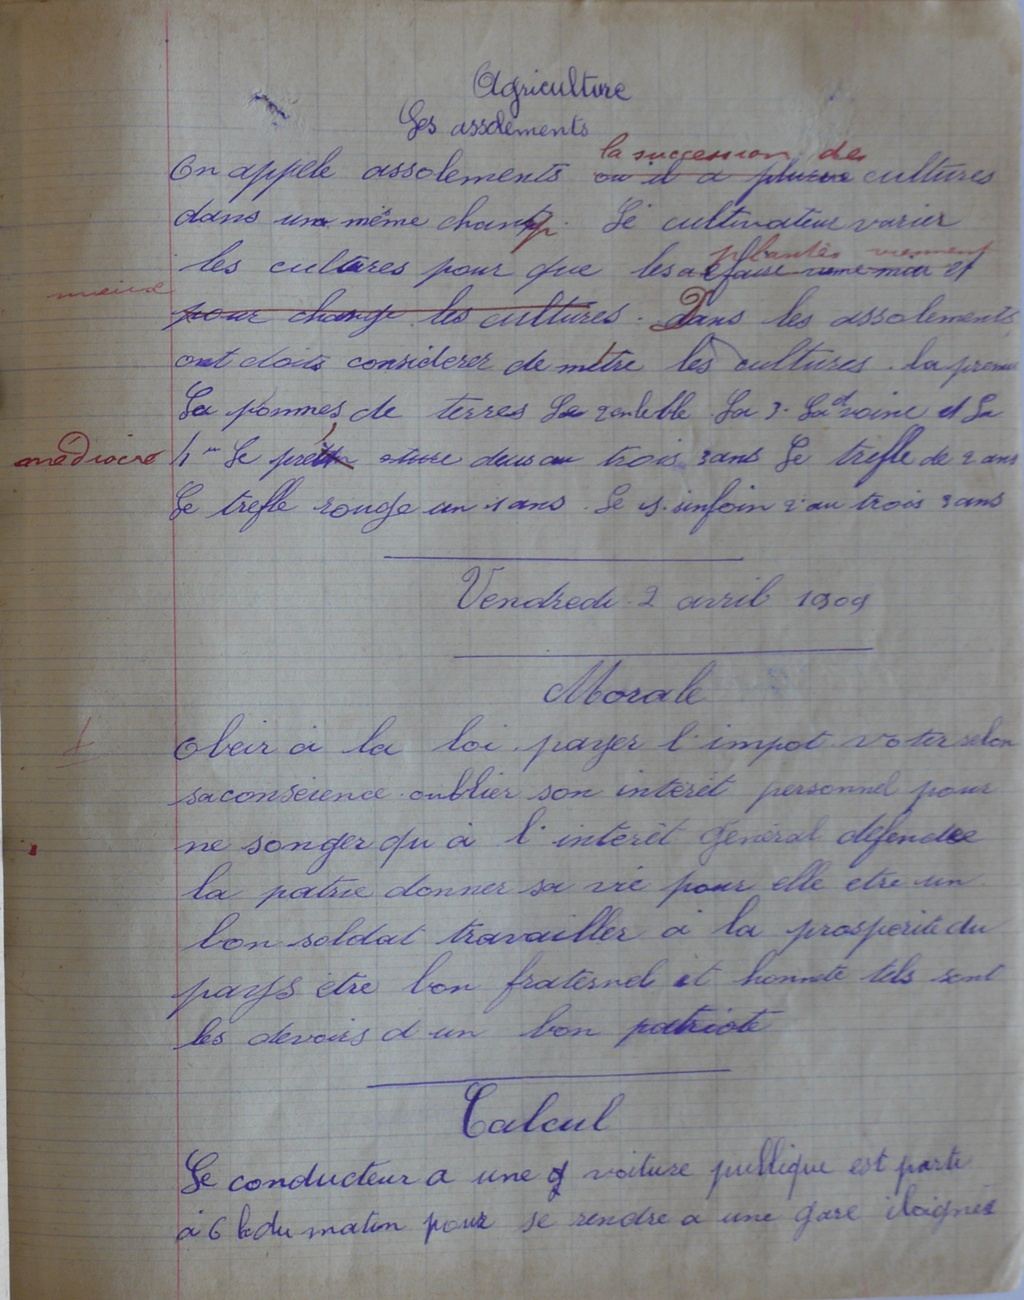 Agriculture
Les assolements
la succession des
On appele assolements ou il a cultures
dans un même champ. Le cultivateur varier
plantes viennent
les cultures pour que les
mieux
pour change les cultures. Dans les assolements
ont dois considerer de mètre les cultures. la
La pommes de terres La et La
médiocre
Le trois 3 ans Le trefle de 2 ans
Le trefle rouge un 1 ans. Le au trois 3 ans
Vendredi 2 avril 1909
Morale
Obeir à la loi payer l'impot voter selon
sa conscience oublier son intérêt personnel pour
ne songer qu à l'intérêt général défendre
la patrie donner sa vie pour elle etre un
bon soldat travailler à la prosperite du
pays être bon fraternel et honnete tels sont
les devoirs d un bon patriote
Calcul
Le conducteur a une voiture publique est parti
à 6 h du matin pour se rendre a une gare